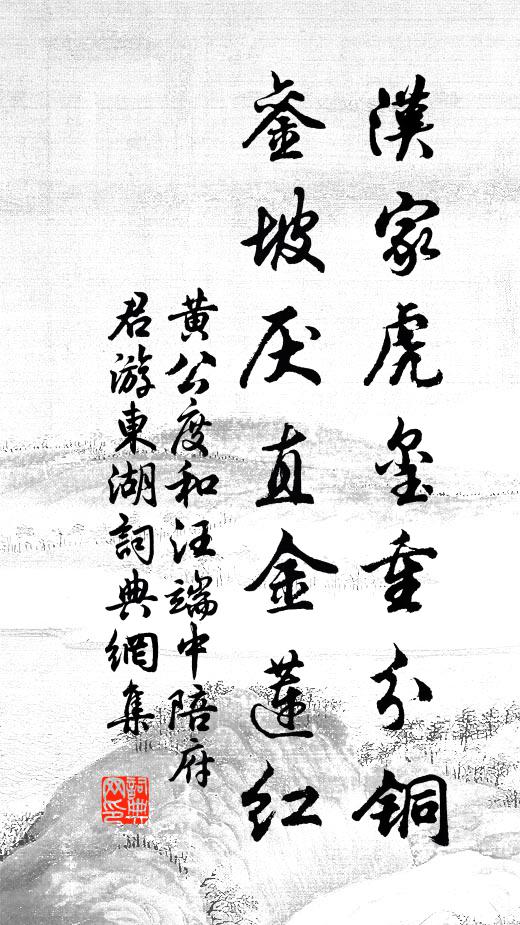 漢家虎玺重分铜
銮坡厌直金蓮红
黄公度和汪端中陪府
君游東湖詞典網集
詞典网印